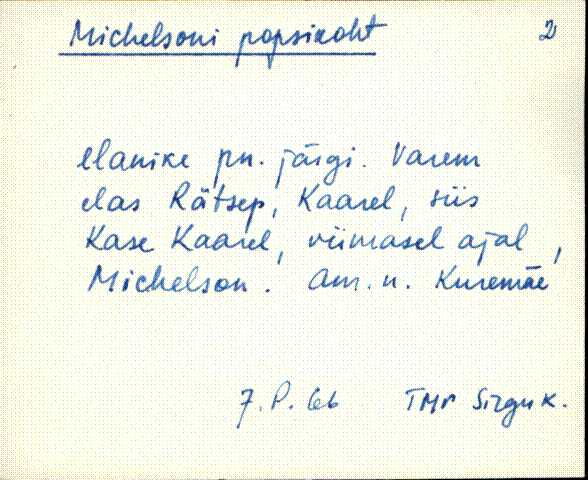 Michelsoni popsikoht 2
elanike pn. järgi. Varem
elas Rätsep, Kaarel, siis
Kase Kaarel, viimasel ajal,
Michelson. Am. n. Kuremäe
7. P. 66 TMr Sirguk.